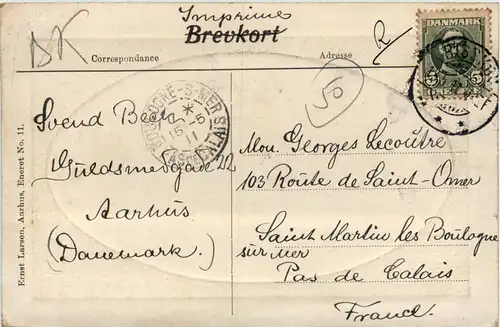 Imprimés
Brevkort
DK
Correspondance
Adresse
DANMARK
5 5
BOULOGNE-S-MER
15-6
11
PAS DE CALAIS
50
Svend Bech
Guldsmedgade 22
Aarhus
(Danemark.)
Mon. Georges Lecoûtre
103 Route de Saint-Omer
Saint Martin les Boulogne
sur mer
Pas de Calais
France.
Ernst Larsen, Aarhus, Eneret No. 11.